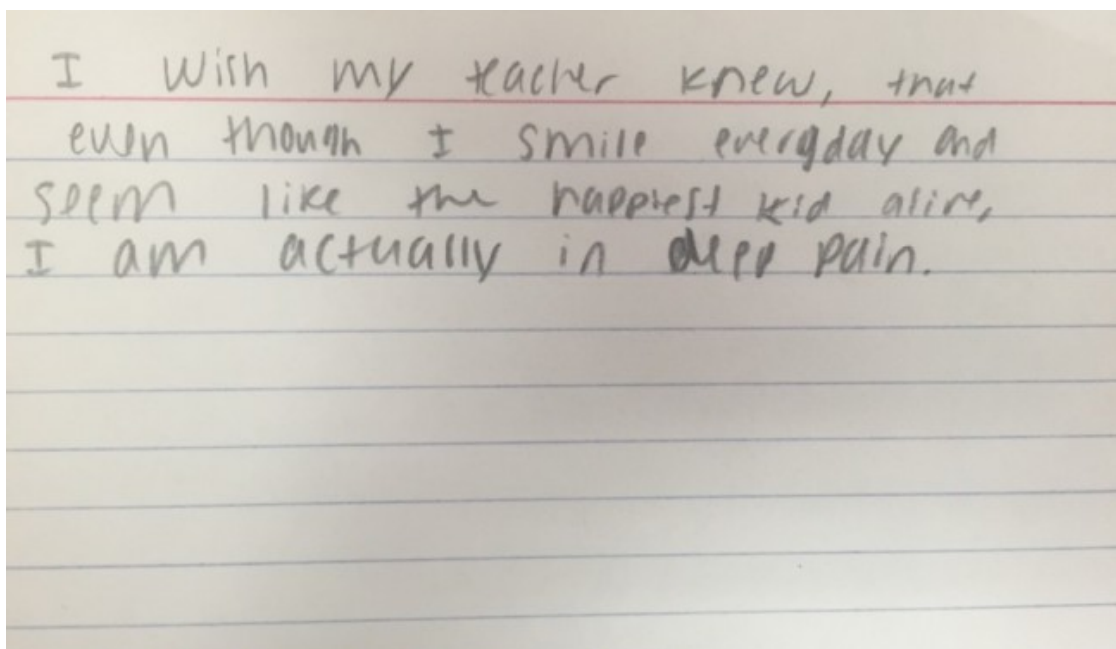 I wish my teacher knew, that
even though I smile everyday and
seem like the happiest kid alive,
I am actually in deep pain.